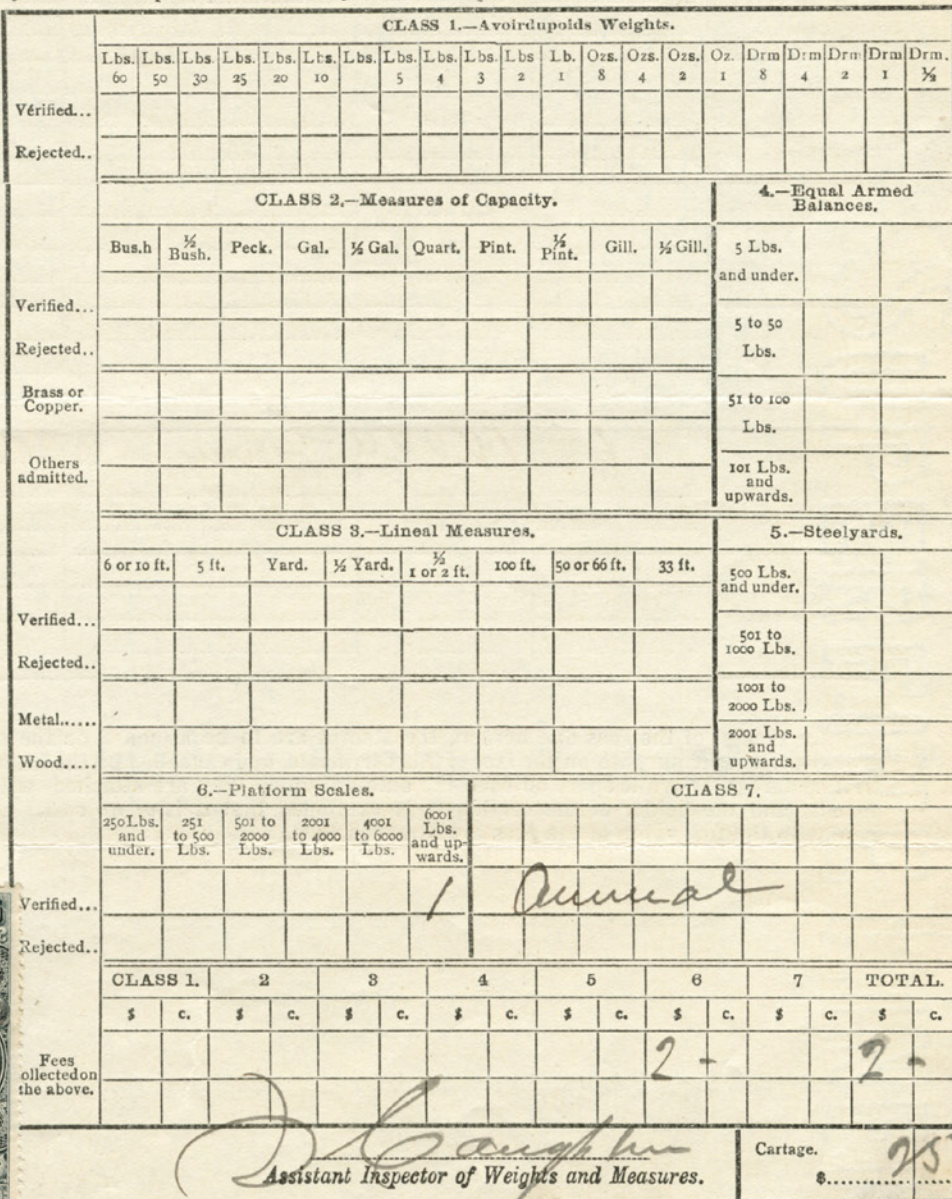 CLASS 1.—Avoirdupoids Weights.
Lbs. Lbs. Lbs. Lbs. Lbs. Lbs. Lbs. Lbs. Lbs. Lbs. Lbs Lb. Ozs. Ozs. Ozs. Oz. Drm Drm Drm Drm Drm.
60 50 30 25 20 10 5 4 3 2 1 8 4 2 1 8 4 2 1 ½
Verified...
Rejected..
CLASS 2.—Measures of Capacity.
Bus.h ½ Bush. Peck. Gal. ½ Gal. Quart. Pint. ½ Pint. Gill. ½ Gill.
Verified...
Rejected..
Brass or
Copper.
Others
admitted.
4.—Equal Armed
Balances.
5 Lbs.
and under.
5 to 50
Lbs.
51 to 100
Lbs.
101 Lbs.
and
upwards.
CLASS 3.—Lineal Measures.
6 or 10 ft. 5 ft. Yard. ½ Yard. ½ 1 or 2 ft. 100 ft. 50 or 66 ft. 33 ft.
Verified...
Rejected..
Metal......
Wood.....
5.—Steelyards.
500 Lbs.
and under.
501 to
1000 Lbs.
1001 to
2000 Lbs.
2001 Lbs.
and
upwards.
6.—Platform Scales.
250Lbs. and under. 251 to 500 Lbs. 501 to 2000 Lbs. 2001 to 4000 Lbs. 4001 to 6000 Lbs. 6001 Lbs. and up- wards.
CLASS 7.
Verified... 1 Annual
Rejected..
CLASS 1. 2 3 4 5 6 7 TOTAL.
$ c. $ c. $ c. $ c. $ c. $ c. $ c. $ c.
Fees
ollected on
the above.
2 - 2 -
Assistant Inspector of Weights and Measures.
Cartage.
$.......... 25